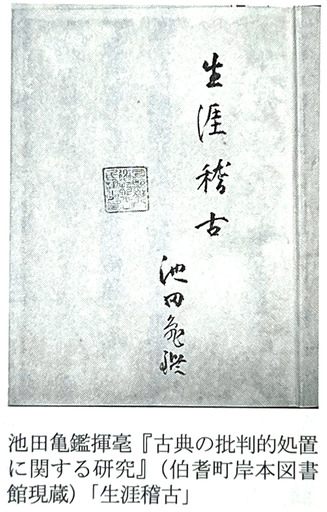 生涯稽古
池田亀鑑
池田亀鑑揮毫『古典の批判的処置
に関する研究』（伯耆町岸本図書
館現蔵）「生涯稽古」